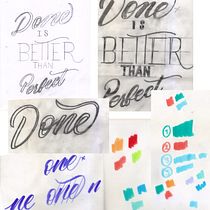 Done
IS
BETTER
THAN
Perfect
Done
IS
BETTER
THAN
Perfect
Done
one
ne one n